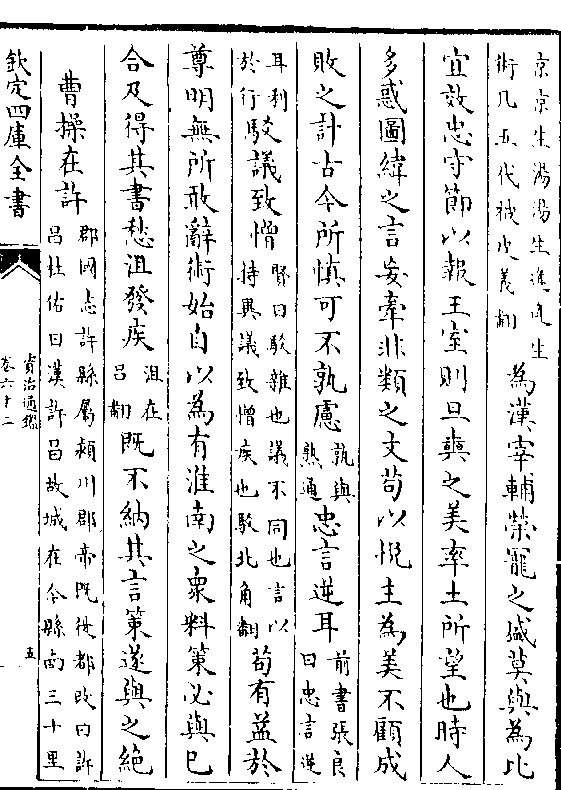 京京生湯湯生逄逄生
術凡五代祑皮義翻
為漢宰輔榮寵之盛莫與為比
宜效忠守節以報王室則旦奭之美率土所望也時人
多惑圖緯之言妄牽非類之文苟以悅主為美不顧成
敗之計古今所慎可不孰慮
孰與
熟通
忠言逆耳
前書張良
曰忠言逆
耳利
於行
駮議致憎
賢曰駮雜也議不同也言以
持異議致憎疾也駮北角翻
苟有益於
尊明無所敢辭術始自以為有淮南之衆料策必與已
合及得其書愁沮發疾
沮在
呂翻
既不納其言策遂與之絶
曹操在許
郡國志許縣屬潁川郡帝既徙都改曰許
昌杜佑曰漢許昌故城在今縣南三十里
欽定四庫全書
資治通鑑
卷六十二
五